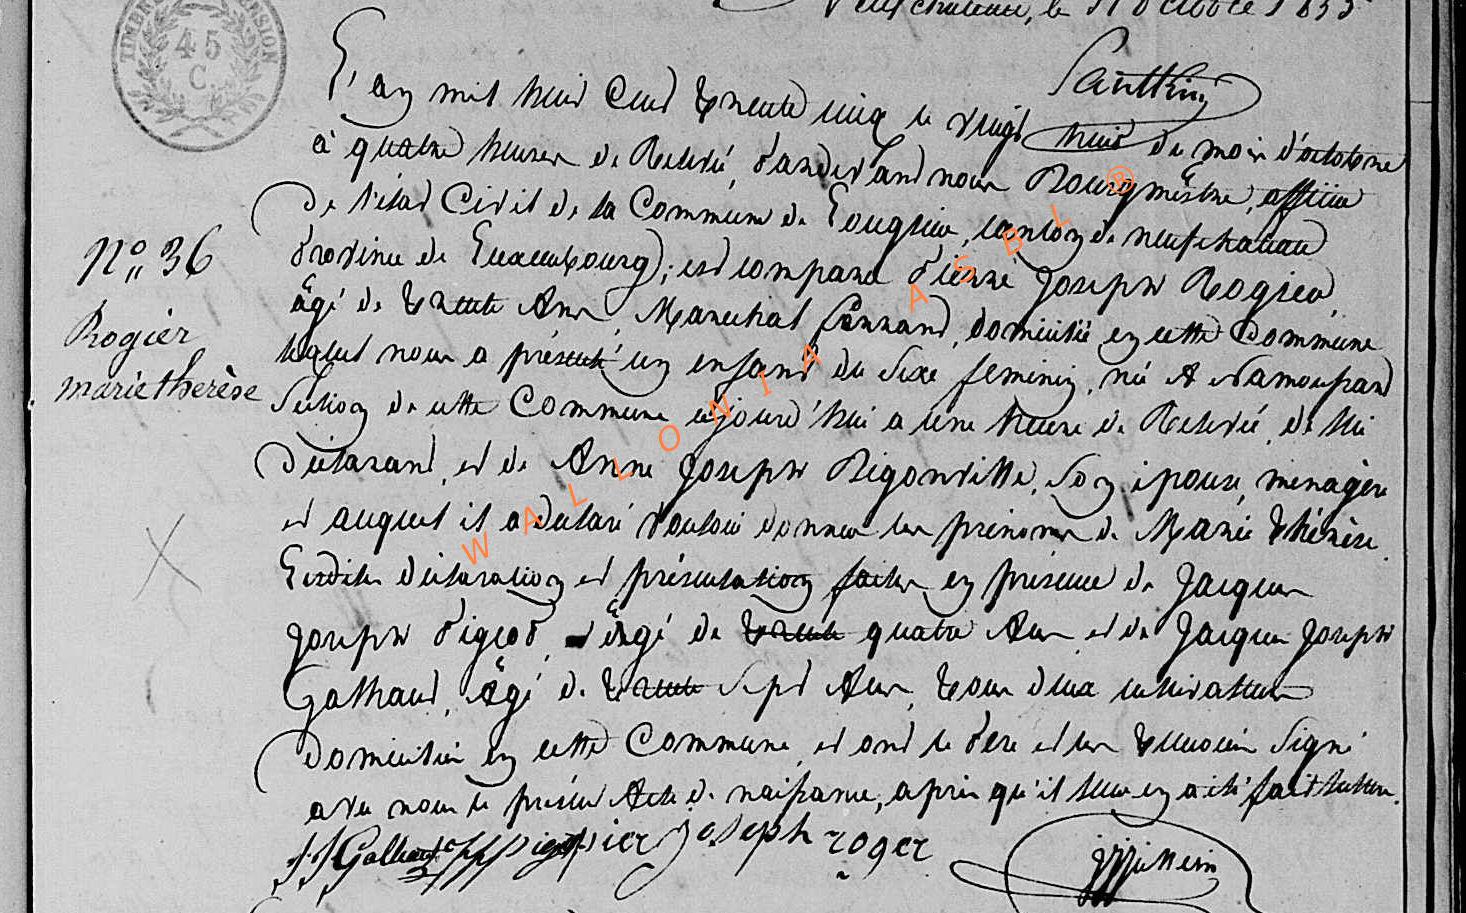 TIMBRE
45
C.
Neufchateau, le 31 octobre 1835
L'an mil huit Cent trente cinq le vingt huit du mois d'octobre
à quatre heures de Relevé, Pardevant nous Bourgmêstre, officier
de l'état Civil de la Commune de Tougrin, canton de neufchateau
Province de Luxembourg), est comparu Pierre Joseph Rogier,
âgé de trente Ans, Marechal ferrand, domicilié en cette Commune
lequel nous a présenté un enfant du Sexe feminin, né A
Section de cette Commune aujourd'hui a une heure de Relevé, de lui
Déclarant, et de Anne Joseph Rigonville, son épouse, ménagère
et auquel il a déclaré vouloir donner les prénoms de Marie thérèse.
Lesdites déclaration et présentation faites en présence de Jacques
Joseph Pigeot, âgé de trente quatre Ans et de Jacques Joseph
Galhaut, Agé de trente Sept Ans, tous deux cultivateurs
domiciliés en cette Commune, et ont le Père et les témoins Signé
avec nous le présent Acte de naissance, après qu'il leur en a été fait lecture.
J J Galhaut pier joseph roger
N° 36
Rogier
marie therèse
WALLONIA ASBL ®